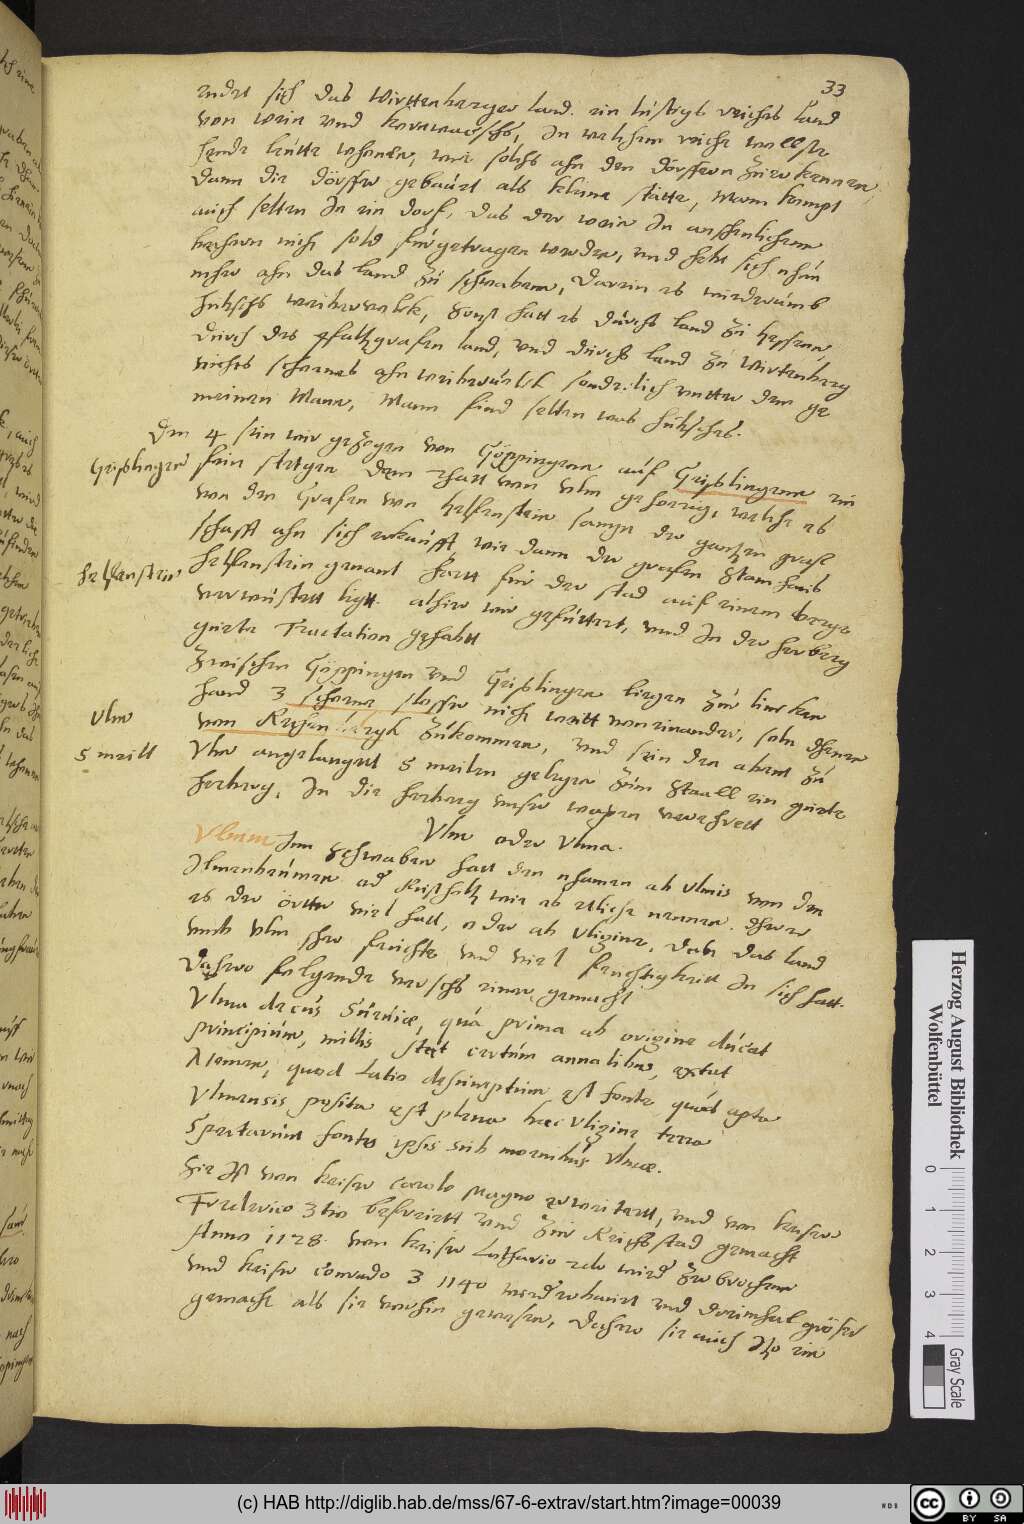 33
endet sich das Wirttenberger land. ein lustigs reichs land
von wein und kornwachs, In welchem reiche wollste
hende leutte wohnen, wie solchs ahn den dörffern zuerkennen,
dann die dörffer gebauet als kleine stätte, Mann kompt
auch selten In ein dorf, das der wein In
nich solt fürgetragen werden, und hebt sich
mehr ahn das land zu schwaben, darin es
hubschs weibervolck, sonst hatt es durchs land zu hessen,
durch des pfaltzgrafen land, und durchs land zu Wirtenberg
nichts schoenes ahn weibervolck sonderlich untter dem ge
meinen Mann, Mann find selten was hubsches.
Den 4 sein wir gezogen von Göppingenn auf Geißlingenn ein
Geißlingen
fein stetgen dem rhatt von Ulm gehorig, welche es
von den Grafen von helfenstein sampt der gantzen graf
schafft ahn sich erkaufft, wie dann der grafen Stam haus
helfenstein
helffenstein genant hartt für der stad auf einem berge
verwüstett ligtt. alhier wir gefuttert, und In der herberg
guete Tractation gehabtt
Zwischen Göppingen und Geißlingen liegen zur lincken
hand 3 schoene schlosser nich weitt von einander, seln
Ulm
von Rechenbergk zukommen, und sein den abent zu
5 meill
Ulm angelanget 5 meilen gelegen zum Staall ein guete
herberg, In die herberg unser wapen verehrett
Ulm oder Ulma.
Ulmm Inn Schwaben hatt den nhamen ab Ulmis von den
Ilmenbeumen wie es etliche nennen. dherer
es der örtter viel hatt, oder ab Uligine, das das land
umb Ulm sehr feuchte und viel feuchtigkeitt In sich hatt.
Daher folgende versch einer gemacht
Ulma decus Sueviæ, quà prima ab origine ducat
principium, nullis stat certum annalibus, extat
Nomen, quod Latio desumptum est fonte quòd apta
Ulmensis posita est plena haec Uligine terra
Spectarunt fontes ipsis sub moenibus Ulmæ.
Sie Ist von keiser Carolo Magno erweitertt, und von keiser
Frederico 3tio befreiett und zur Reichsstad gemacht
Anno 1128. von keiser Lothario zerbrochen
und keiser Conrado 3 1140 wieder erbauet und dreimhal größer
gemacht als sie vorhin gewesen, daher sie auch Itzo ein
Herzog August Bibliothek
Wolfenbüttel
0 1 2 3 4
Gray Scale
(c) HAB http://diglib.hab.de/mss/67-6-extrav/start.htm?image=00039
WDB
CC BY SA